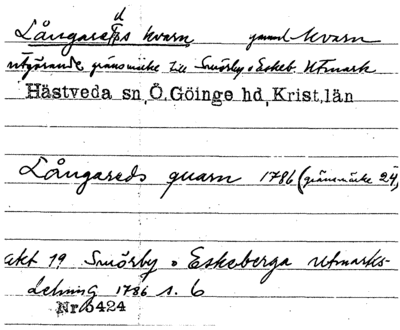 d
Långareds kvarn gammal kvarn
utgörande gränsmärke till Smörby o Eskeb. Utmark
Hästveda sn, Ö. Göinge hd, Krist. län
Långareds quarn 1786 (gränsmärke 24)
akt 19 Smörby o Eskeberga utmarks-
delning 1786 s. 6
Nr 6424